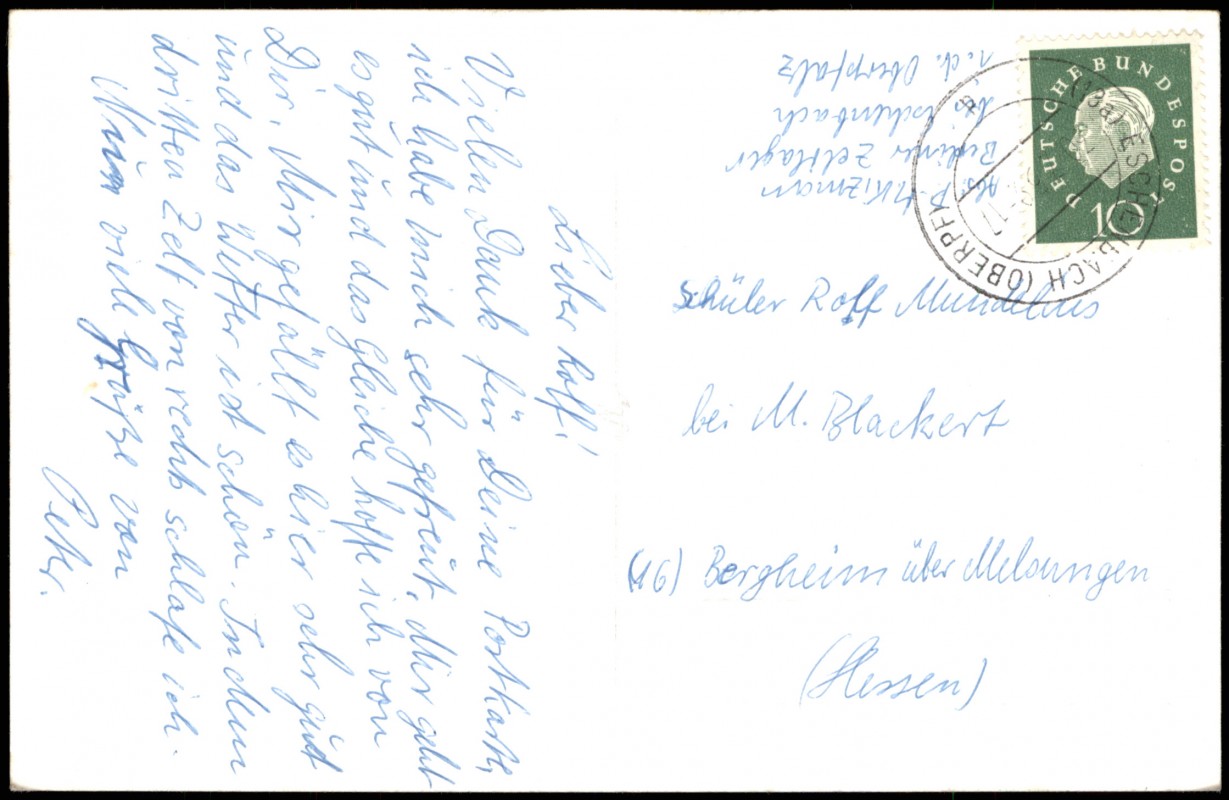 Lieber Rolf!
Vielen Dank für Deine Postkarte,
ich habe mich sehr gefreut. Mir geht
es gut und das gleiche hoffe ich von
Dir. Mir gefällt es hier sehr gut
und das Wetter ist schön. In dem
dritten Zelt von rechts schlafe ich.
Nun viele Grüße von
Peter.
Abs. P.
Berliner Zeltlager
Eschenbach
i. d. Oberpfalz
DEUTSCHE BUNDESPOST
10
(13a) ESCHENBACH (OBERPF)
a
Schüler Rolf
bei M. Blackert
(16) Bergheim über Melsungen
(Hessen)